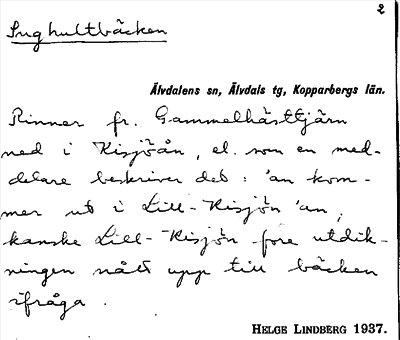 2
Sughultbäcken
Älvdalens sn, Älvdals tg, Kopparbergs län.
Rinner fr. Gammelhästtjärn
ned i Kisjöån, el. som en med-
delare beskriver det: 'an kom-
mer ut i Lill-Kisjön 'an,
kanske Lill-Kisjön före utdik-
ningen nått upp till bäcken
ifråga.
HELGE LINDBERG 1937.